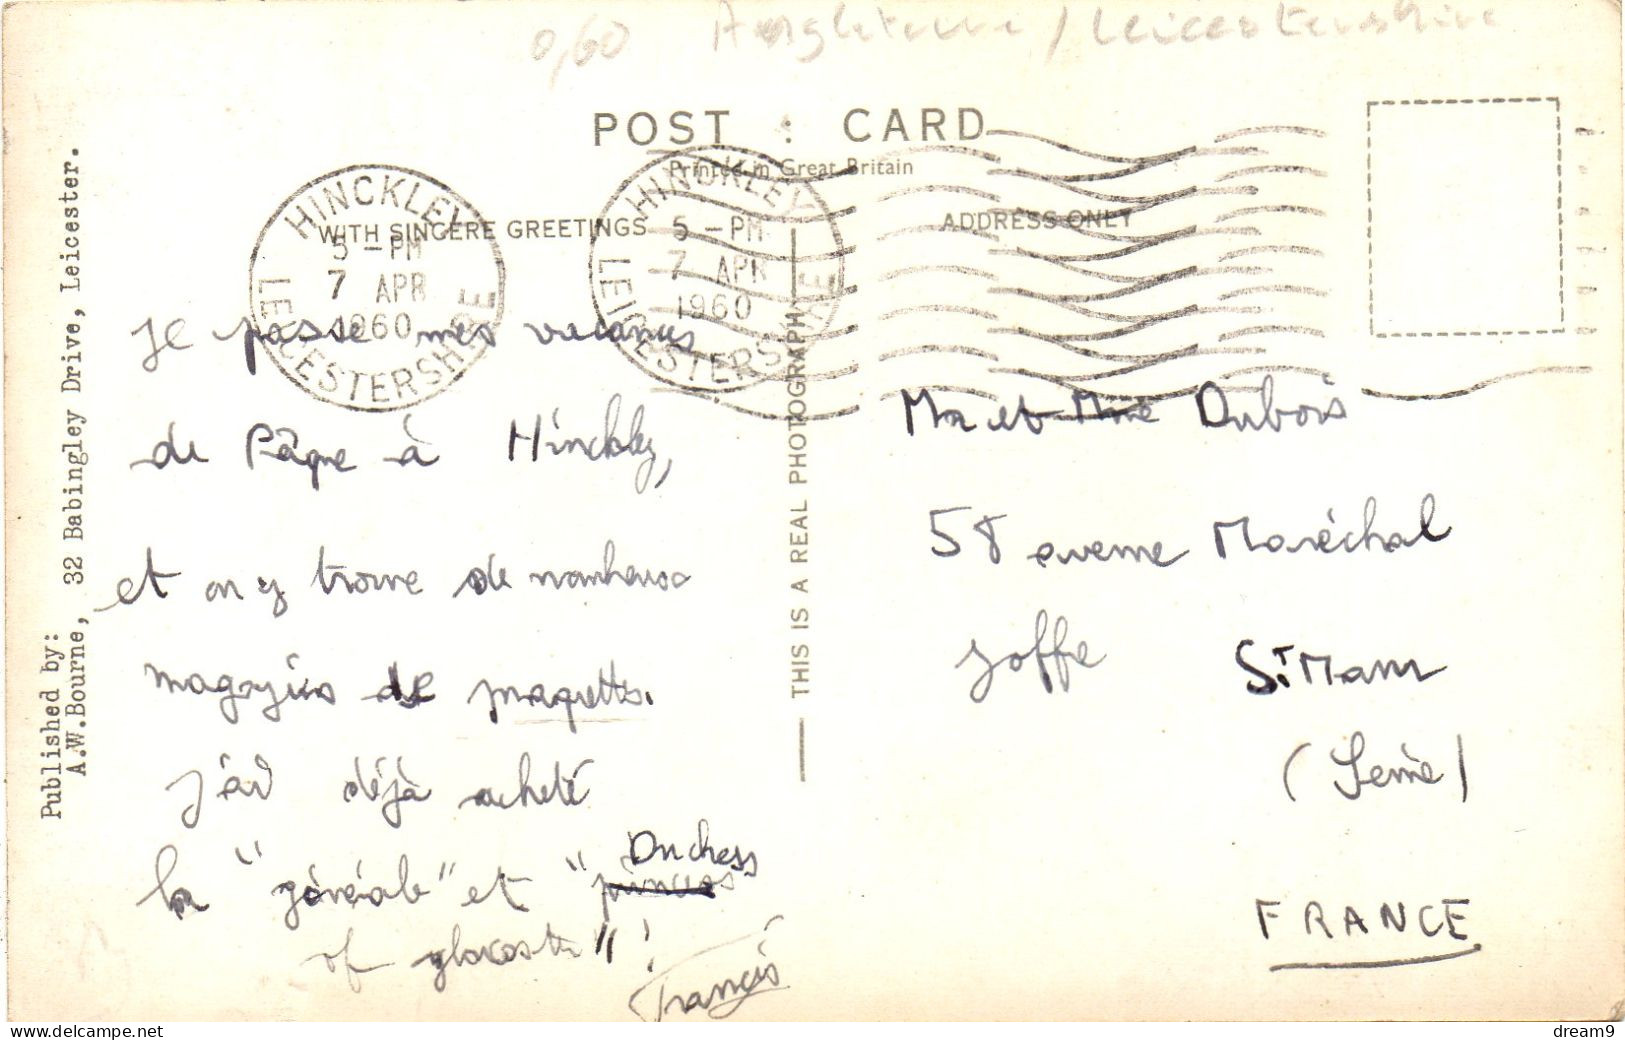 0,60 Angleterre / Leicestershire
POST CARD
Printed in Great Britain
WITH SINCERE GREETINGS
ADDRESS ONLY
HINCKLEY
5 - PM
7 APR
1960
LEICESTERSHIRE
HINCKLEY
5 - PM
7 APR
1960
LEICESTERSHIRE
Published by:
A.W.Bourne, 32 Babingley Drive, Leicester.
THIS IS A REAL PHOTOGRAPH
Je passe mes vacances
de Pâque à Hinckley,
et on y trouve de nombreux
magasins de maquettes.
J'ai déjà acheté
la "générale" et "Duchess
of glocester"!
Francis
Mr et Mme Dubois
58 avenue Maréchal
Joffre St Maur
(Seine)
FRANCE
dream9
www.delcampe.net